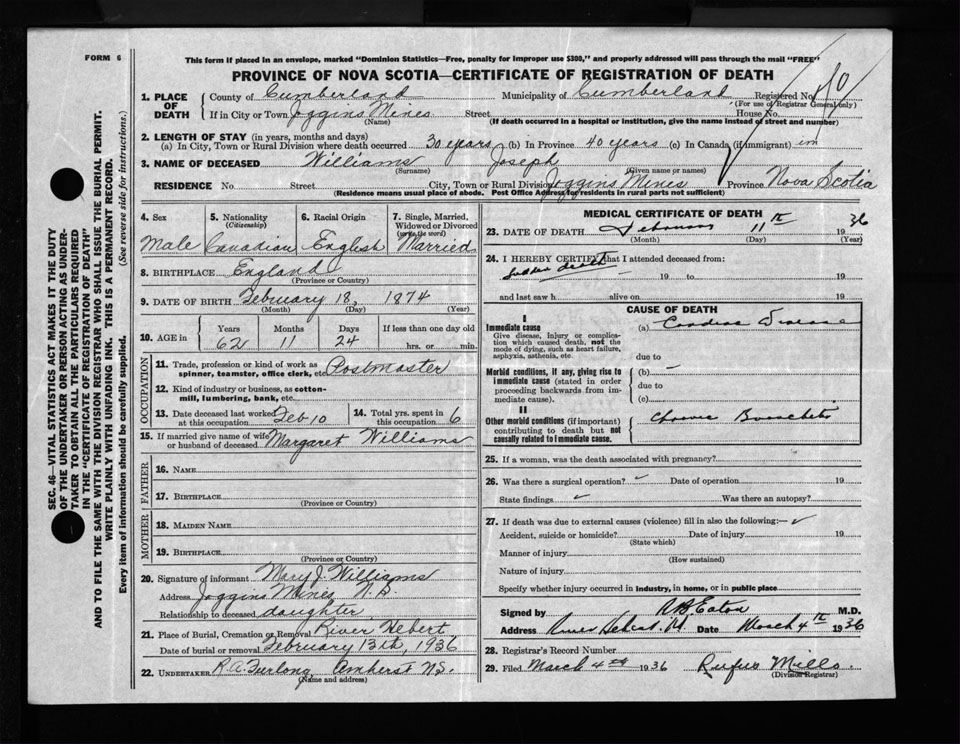 FORM 6
This form if placed in an envelope, marked "Dominion Statistics—Free, penalty for improper use $300," and properly addressed will pass through the mail "FREE"
PROVINCE OF NOVA SCOTIA—CERTIFICATE OF REGISTRATION OF DEATH
1. PLACE OF DEATH County of Cumberland Municipality of Cumberland Registered No.
(For use of Registrar General only)
If in City or Town Joggins Mines Street House No.
(Name) (If death occurred in a hospital or institution, give the name instead of street and number)
2. LENGTH OF STAY (in years, months and days)
(a) In City, Town or Rural Division where death occurred 30 years (b) In Province 40 years (c) In Canada (if immigrant)
3. NAME OF DECEASED Williams Joseph
(Surname) (Given name or names)
RESIDENCE No. Street City, Town or Rural Division Joggins Mines Province Nova Scotia
(Residence means usual place of abode. Post Office Address for residents in rural parts not sufficient)
4. Sex 5. Nationality (Citizenship) 6. Racial Origin 7. Single, Married, Widowed or Divorced (write the word)
Male Canadian English Married
8. BIRTHPLACE England
(Province or Country)
9. DATE OF BIRTH February 18, 1874
(Month) (Day) (Year)
10. AGE in Years Months Days If less than one day old
62 11 24 hrs. or min.
OCCUPATION
11. Trade, profession or kind of work as spinner, teamster, office clerk, etc. Postmaster
12. Kind of industry or business, as cotton-mill, lumbering, bank, etc.
13. Date deceased last worked at this occupation Feb 10 14. Total yrs. spent in this occupation 6
15. If married give name of wife or husband of deceased Margaret Williams
FATHER
16. NAME
17. BIRTHPLACE
(Province or Country)
MOTHER
18. MAIDEN NAME
19. BIRTHPLACE
(Province or Country)
20. Signature of informant Mary J. Williams
Address Joggins Mines N.S.
Relationship to deceased daughter
21. Place of Burial, Cremation or Removal River Hebert
Date of burial or removal February 13th, 1936
22. UNDERTAKER R.A. Furlong Amherst N.S.
(Name and address)
MEDICAL CERTIFICATE OF DEATH
23. DATE OF DEATH February 11th 1936
(Month) (Day) (Year)
24. I HEREBY CERTIFY that I attended deceased from:
sudden death 19 to 19
and last saw h alive on 19
CAUSE OF DEATH
I
Immediate cause (a) Cardiac Disease
Give disease, injury or complication which caused death, not the mode of dying, such as heart failure, asphyxia, asthenia, etc.
due to
Morbid conditions, if any, giving rise to immediate cause (stated in order proceeding backwards from immediate cause).
(b) —
due to
(c)
II
Other morbid conditions (if important) contributing to death but not causally related to immediate cause.
Chronic Bronchitis
25. If a woman, was the death associated with pregnancy?
26. Was there a surgical operation? Date of operation 19
State findings Was there an autopsy?
27. If death was due to external causes (violence) fill in also the following:—
Accident, suicide or homicide? Date of injury 19
(State which)
Manner of injury
(How sustained)
Nature of injury
Specify whether injury occurred in industry, in home, or in public place
Signed by Eaton M.D.
Address River Hebert Date March 4th 1936
28. Registrar's Record Number
29. Filed March 4th 1936 Rufus Mills
(Division Registrar)
SEC. 46—VITAL STATISTICS ACT MAKES IT THE DUTY
OF THE UNDERTAKER OR PERSON ACTING AS UNDER-
TAKER TO OBTAIN ALL THE PARTICULARS REQUIRED
IN THE "CERTIFICATE OF REGISTRATION OF DEATH"
AND TO FILE THE SAME WITH THE DIVISION REGISTRAR WHO SHALL ISSUE THE BURIAL PERMIT.
WRITE PLAINLY WITH UNFADING INK. THIS IS A PERMANENT RECORD.
Every item of information should be carefully supplied. (See reverse side for instructions.)